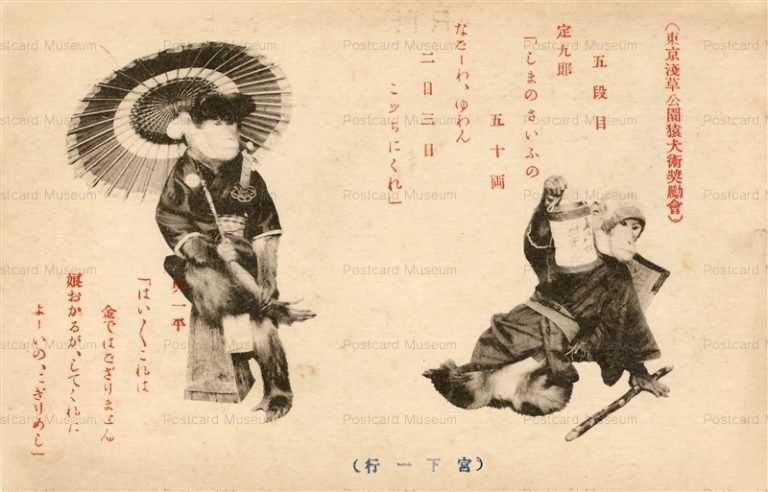 （東京淺草公園猿犬術奬勵會）
五段目
定九郎
『しまのさいふの
五十両
なさーわ、ゆわん
二日三日
こッちにくれ』
與一平
『はい〳〵これは
金ではござりません
娘おかるが、してくれた
よーいの、こぎりめし』
（宮下一行）
Postcard Museum